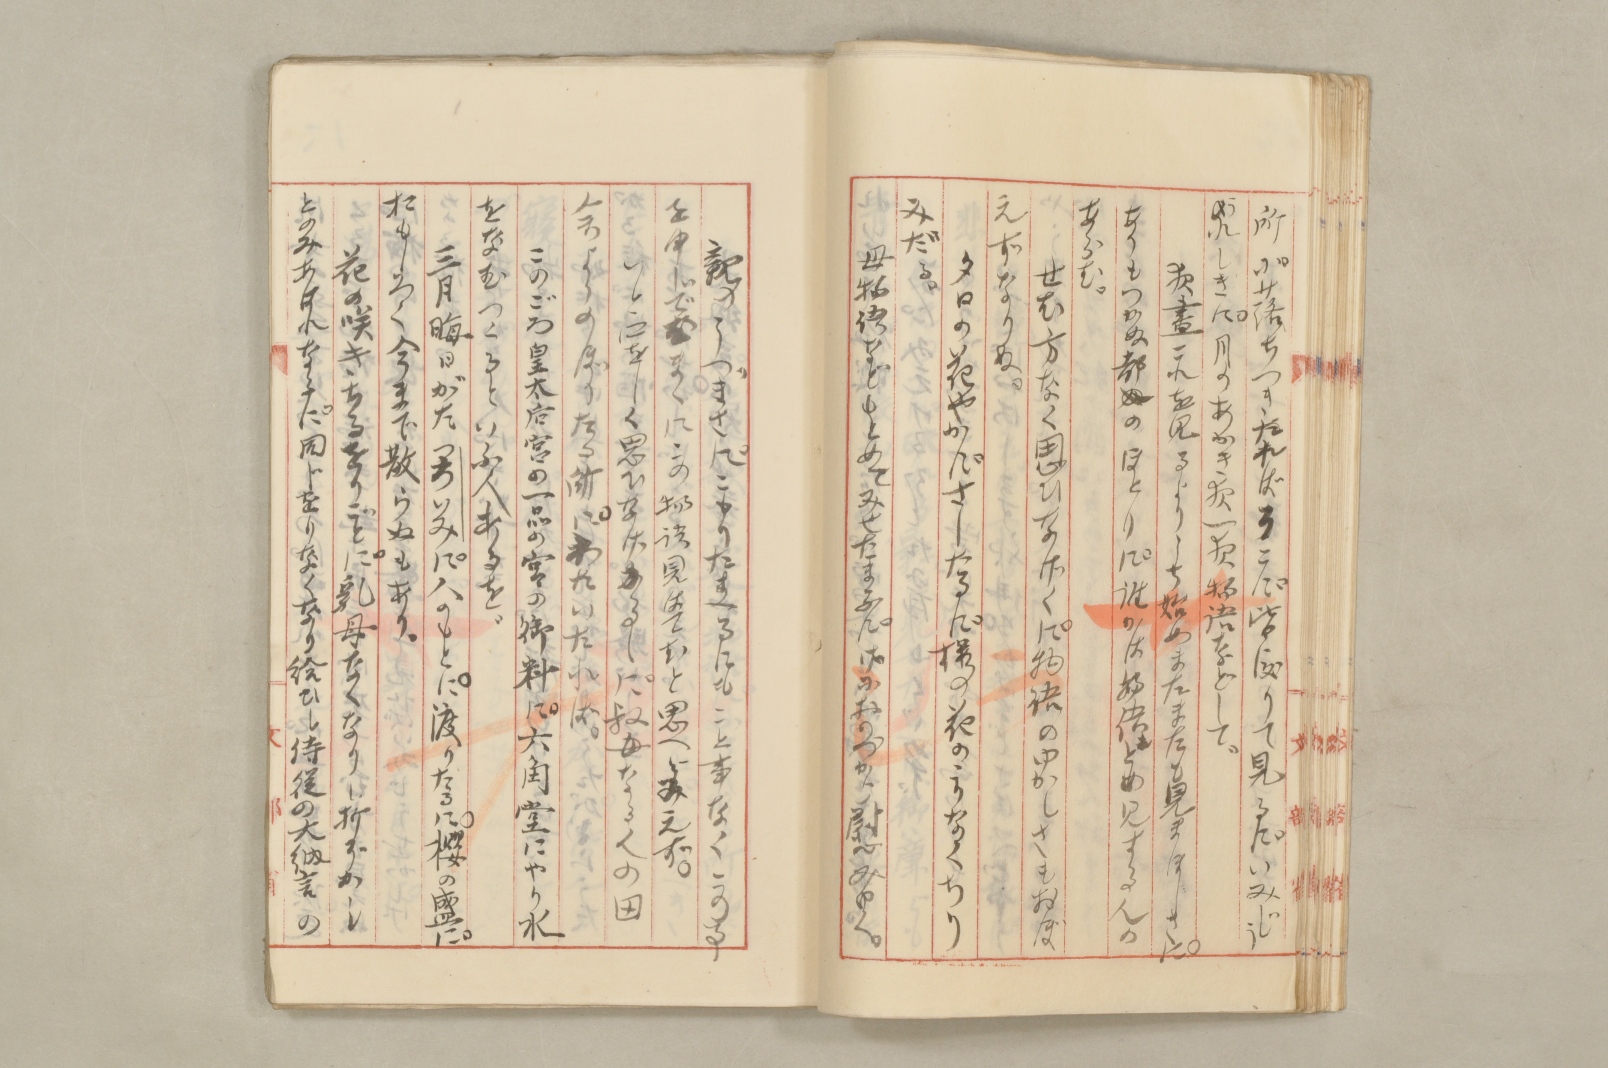 所に落ちつきたればそこに皆渡りて見るにいみじう
うれしきに。月のあかき夜一夜物語などして。
夜晝これを見るよりも始めまたまたも見まほしきに。
ありもつかぬ都のほとりに誰かは物語もとめ見する人の
あらむ。
せむ方なく思ひなげくに。物語のゆかしさもおぼ
えずなりぬ。
夕日の花やかにさしたるに櫻の花のこりなくちり
みだる。
母物語などもとめてみせたまふに。げにおのづから慰みゆく。
親のうづまさに。こもりたまへるにもこと事なくこの事
を申していでむまゝにこの物語見はてむと思へどみえず。
いと口をしく思ひなげかるゝに叔母なる人の田
舎よりのぼりたる所に。わたいたれば。
このごろ皇太后宮の一品の宮の御料に。六角堂にやり水
をなむつくるといふ人あるを
三月晦日がた 土忌みに人のもとに。渡りたるに。櫻の盛に。
おもしろく今まで散らぬもあり。
花の咲きちるをりごとに。乳母なくなりし折ぞかし
とのみあはれなるに。同じをりなくなり給ひし侍従の大納言の
文部省